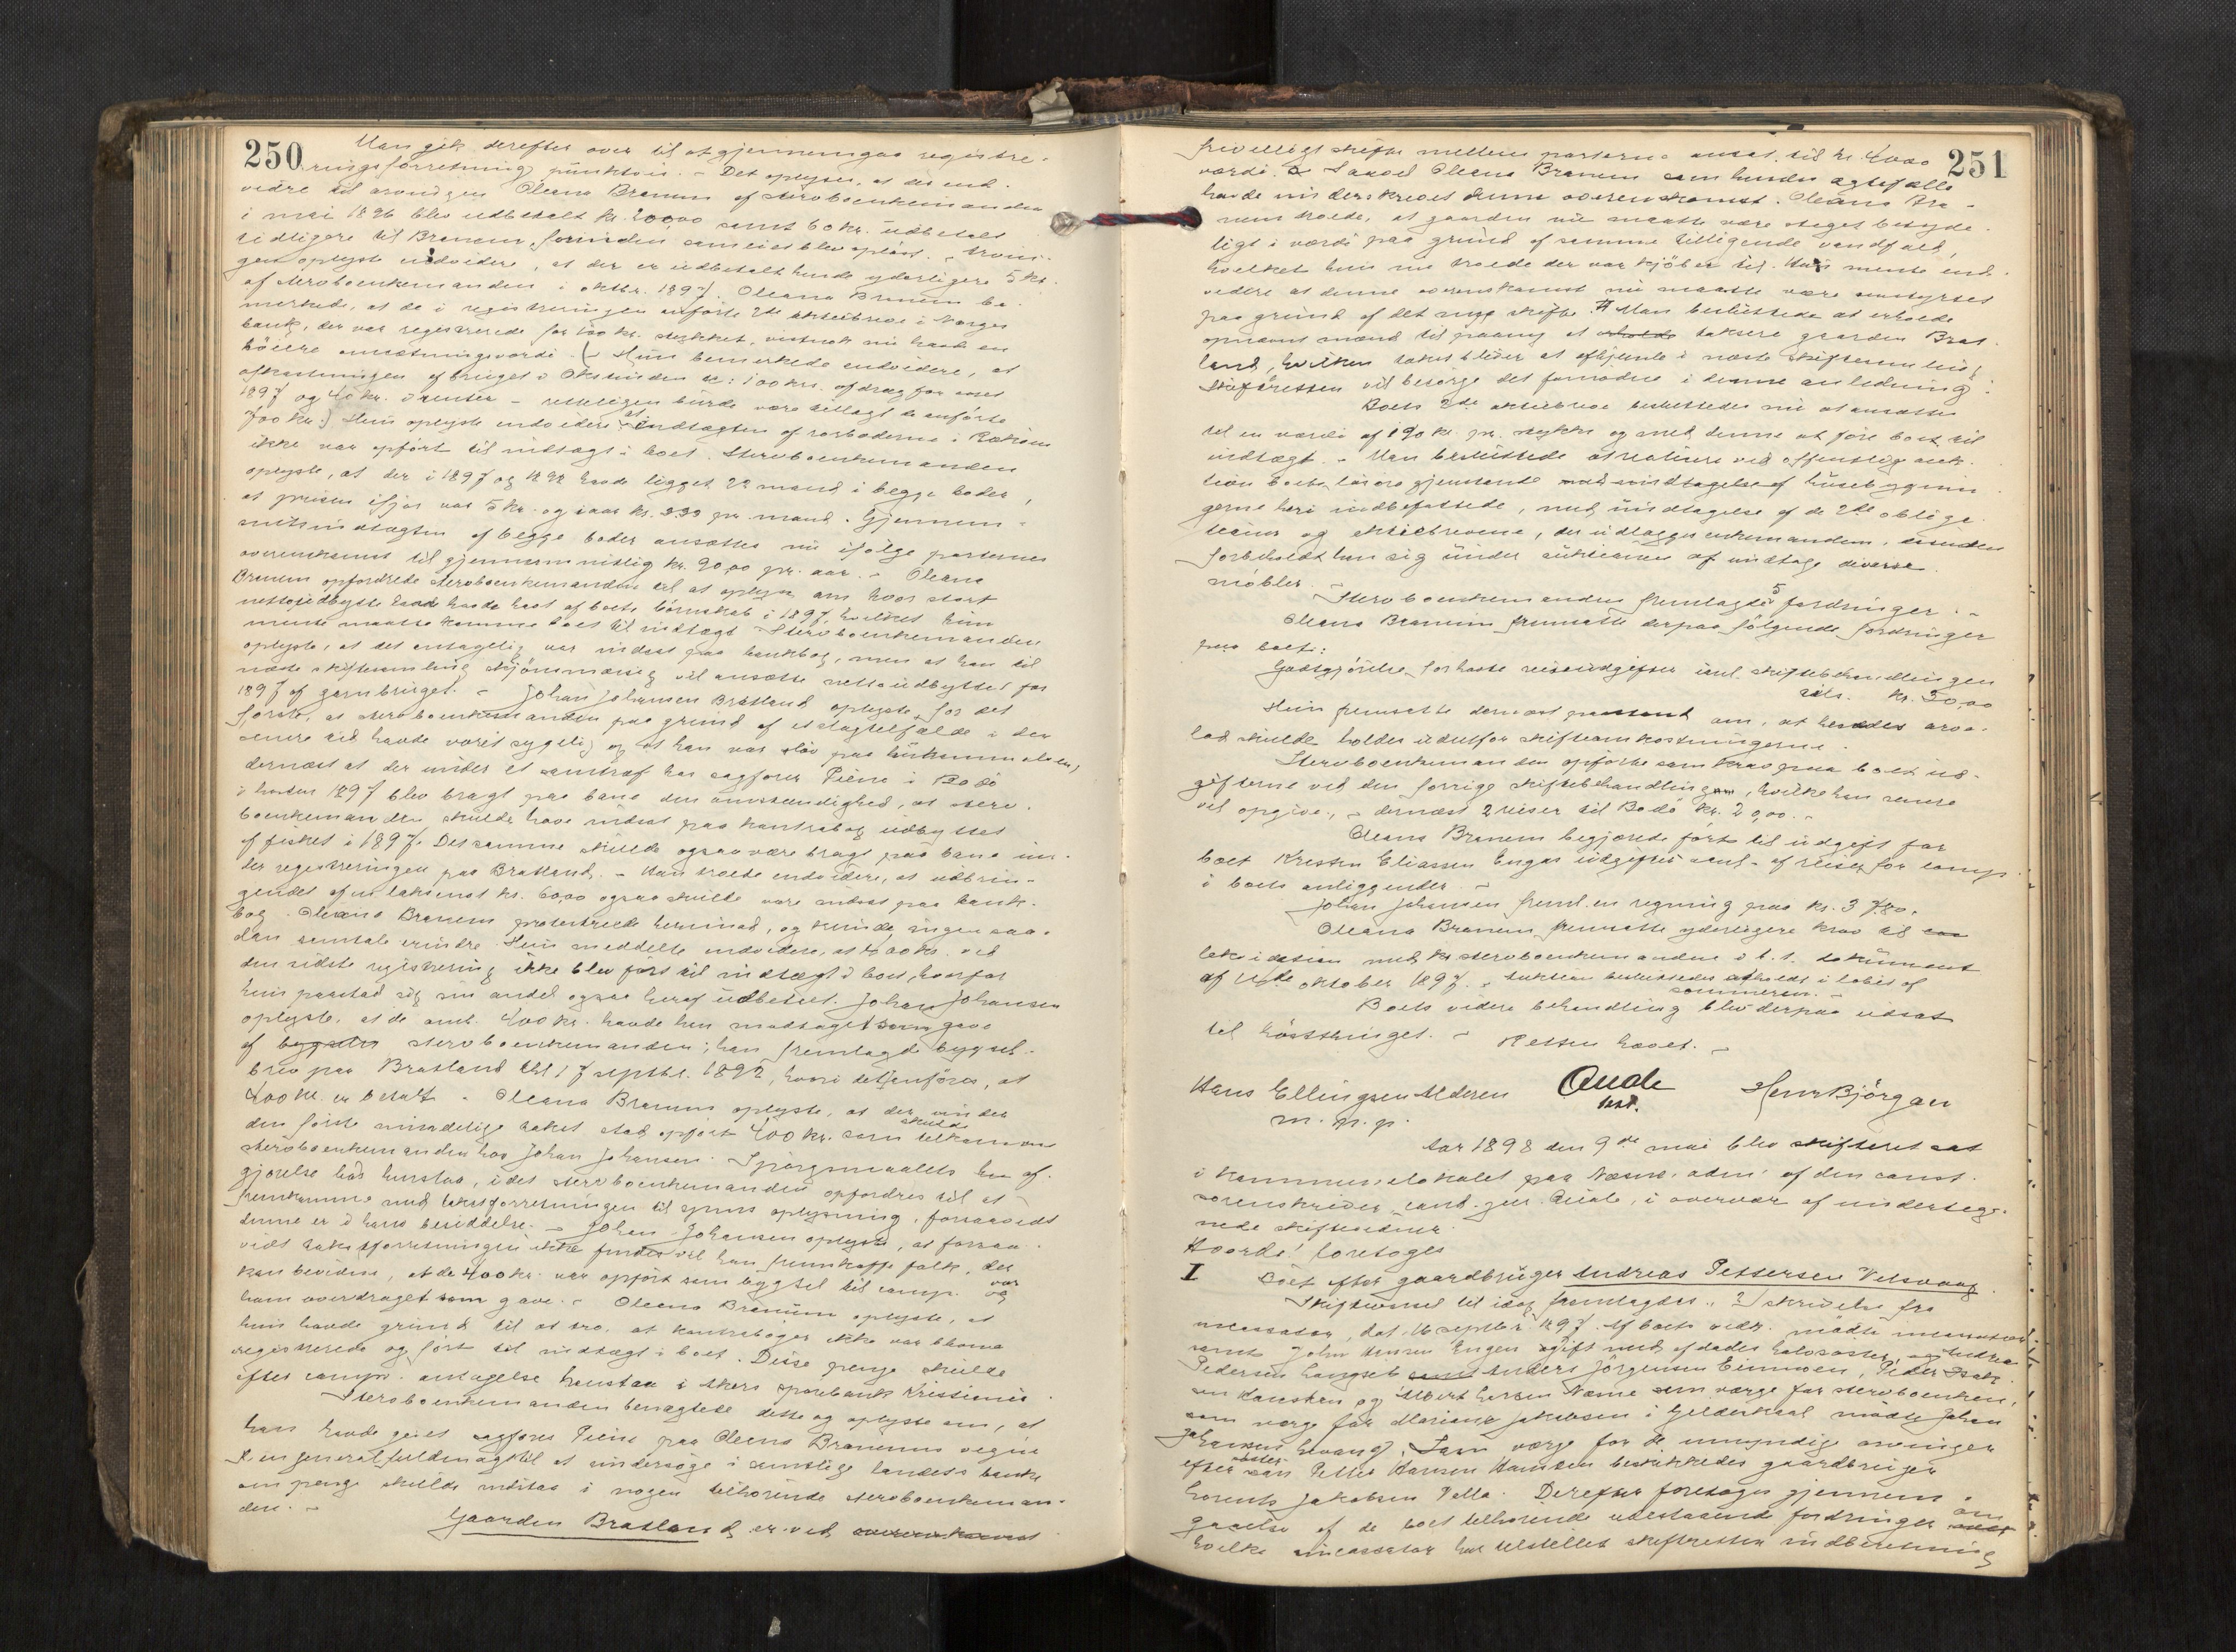 250
Man gik derefter over til at gjennemgaa registre-
ringsforretning punktvis. - Det oplyses, at der end-
videre til arvingen Oleana Branem af stervboenkemanden
i mai 1896 blev udbetalt kr. 2000,00 samt 60 kr. udbetalt
tidligere til Branem, forinden samleiet blev opløst. - Arvin-
gen oplyste endvidere, at der er udbetalt hende yderligere 5 kr.
af stervboenkemanden i oktbr. 1897. Oleana Branem be-
mærkede, at de i registreringen anførte 2de aktiebreve i Norges
bank, der var registrerede for 100 kr. stykket, vistnok nu havde en
høiere omsætningsværdi. Hun bemerkede endvidere, at
afkastningen af bruget i Økssunden x: 100 kr. afdrag for
1897 og 40 kr. i renter - retteligen burde være tillagt de anførte
700 kr.) Hun oplyste endvidere at indtægten af rorboderne i
ikke var opført til indtægt i boet. Stervboenkemanden
oplyste, at der i 1897 og 1898 havde ligget 22 mand i begge boder,
at prisen ifjor var 5 kr. og iaar kr. pr. mand. Gjennem-
snitsindtægten af begge boder ansættes nu ifølge parternes
overenskomst til gjennemsnitlig kr. 90,00 pr. aar. - Oleana
Branem opfordrede stervboenkemanden til at oplyse om hvor stort
nettoudbytte havde havt af boets i 1897, hvilket hun
mente maatte komme boet til indtægt. Stervboenkemanden
oplyste, at det antagelig var indsat paa bankbog, men at han til
næste skiftesamling skjønsmæssig vil ansætte nettoudbyttet for
1897 af garnbruget. - Johan Johansen Bratland oplyste for det
første, at stervboenkemanden paa grund af et slagtilfælde i den
senere tid havde været sygelig og at han var sløv paa hukommelsen,
dernæst at der under et samtræf hos sagfører Piene i Bodø
i høsten 1897 blev bragt paa bane den omstændighed, at sterv-
boenkemanden skulde have indsat paa kontrabog udbyttet
af fisket i 1897. Det samme skulde ogsaa være bragt paa bane un-
der registreringen paa Bratland. - Han troede endvidere, at udbrin-
gendet af en kr. 60,00 ogsaa skulde være indsat paa bank-
bog. Oleana Branem protesterede herimod, og kunde ingen saa-
dan samtale erindre. Hun meddelte endvidere, at 400 kr. ved
den sidste registrering ikke blev ført til indtægt i boet, hvorfor
hun paastod sig sin andel ogsaa heraf udbetalt. Johan Johansen
oplyste, at de omh. 400 kr. havde han modtaget som gave
af bygselen stervboenkemanden; han fremlagde bygsel-
brev paa Bratland dat 17 septbr. 1892, hvori det anføres, at
400 kr. er betalt. - Oleana Branem oplyste, at der under
den første mindelige takst stod opført 400 kr. som skulde tilkomme
stervboenkemanden hos Johan Johansen. Spørgsmaalets
gjørelse lod henstaa, idet stervboenkemanden opfordres til at
fremkomme med takstforretningen til oplysning, forsaavidt
denne er i hans besiddelse. - Johan Johansen oplyste, at forsaa-
vidt takstforretningen ikke findes vil han fremskaffe folk, der
kan bevidne, at de 400 kr. var opført som bygsel til comp. og var
ham overdraget som gave. - Oleana Branem oplyste, at
hun havde grund til at tro, at kontrabøger ikke var blevne
registrerede og ført til indtægt i boet. Disse penge skulde
efter comp. antagelse henstaa i Akers sparebank Kristiania.
Stervboenkemanden benægtede dette og oplyste om, at
han havde givet sagfører Piene paa Oleana Branems vegne
en generalfuldmagt til at undersøge i samtlige landets banke
om penge skulde indstaa i nogen tilhørende stervboenkeman-
den. -
Gaarden Bratland er ved overenskomst
251
frivilligt skifte mellem parterne ansat til kr. 4000
værdi. Saavel Oleana Branem som hendes ægtefælle
havde underskrevet denne overenskomst. Oleana Bra-
nem troede, at gaarden nu maatte være steget betyde-
ligt i værdi paa grund af samme tilliggende vandfald,
hvilket hun nu troede der var kjøber til. Hun mente end-
videre at denne overenskomst nu maatte være omstyrtet
paa grund af det nye skifte. Man besluttede at erholde
opnævnt mænd til paany at erholde taksere gaarden Brat-
land, hvilken takst bliver at afhjemle i næste skiftesamling.
Skifteretten vil besørge det fornødne i denne anledning.
Boets 2de aktiebreve besluttedes nu at ansættes
til en værdi af 190 kr. pr. stykke og med denne at føre boet til
indtægt. - Man besluttede at realisere ved offentlig auk-
tion boets løsøregjenstande med undtagelse af husebygnin-
gerne heri indbefattede, med undtagelse af de 2de obliga-
tioner og aktiebrevene, der udlægges enkemanden, desuden
forbeholdt han sig under auktionen at undtage diverse
møbler. -
Stervboenkemanden fremlagde 5 fordringer. -
Oleana Branem fremsatte derpaa følgende fordringer
paa boet:
Godtgjørelse for havte reiseudgifter isnl. skiftebehandlingen
kr. 30,00
Hun fremsatte dernæst paastand om, at hendes arve-
lod skulde holdes udenfor skifteomkostningerne.
Stervboenkemanden opførte som krav paa boet ud-
gifterne ved den forrige skiftebehandling, hvilke han senere
vil opgive, - dernæst 2 reiser til Bodø kr. 20,00. -
Oleana Branem begjærede ført til udgift for
boet Kristen Eliassen Engas udgifter af reiser for comp.
i boets anliggender. -
Johan Johansen freml. en regning paa kr. 37,80.
Oleana Branem fremsatte yderligere krav til
med stervboenkemanden i h. t. dokument
af 14de oktober 1897. - Auktion besluttedes afholdt i løbet af
sommeren. -
Boets videre behandling blev derpaa udsat
til høstthinget. - Retten hævet. -
Hans Ellingsen Alderen Qvale Henr Bjørgan
m. p. p. kst.
Aar 1898 den 9de mai blev skifteret sat
i kommunelokalet paa Næsne, adm. af den const.
sorenskriver cand. jur. Qvale, i overvær af undertegn-
nede skiftevidner.
Hvorda! foretoges
I Boet efter gaardbruger Andreas Pettersen Velsvaag.
Skiftevarsel til idag fremlagdes. 2) skrivelse fra
incassator, dat. 16 septbr. 1897. Af boets vedk. mødte incassator
samt John Hansen Engen, gift med afdødes halvsøster, og Andreas
Pedersen Langset samt Anders Jørgensen Einmoen, Peder Isak-
sen Hansken og Albert Larsen Næsne som værge for stervboenken,
som værge for Mariane Jakobsen i Gildeskaal mødte Johan
Johansen Levang. Som værge for de umyndige arvinger
efter søster Petter Hansen Handen beskikkedes gaardbruger
Lorents Jakobsen Valla. Derefter foretoges gjennem-
gaaelse af de boet tilhørende udestaaende fordringer om
hvilke incassator har tilstillet skifteretten indberetning